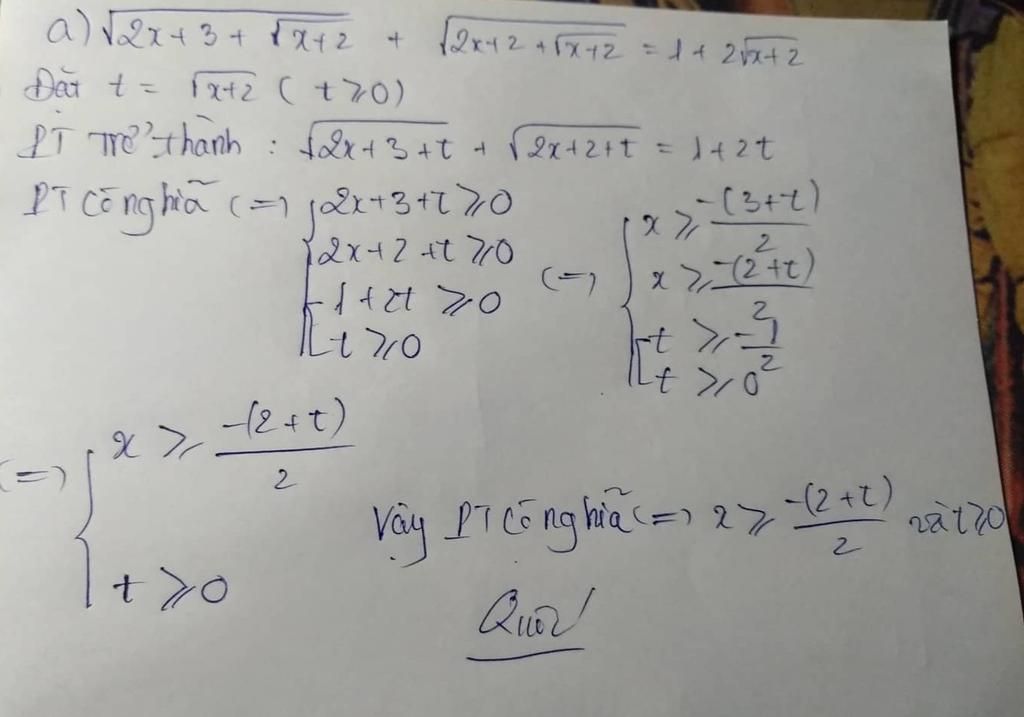 a) √(2x+3+√(x+2)) + √(2x+2+√(x+2)) = 1+2√(x+2)
Đặt t = √(x+2) (t⩾0)
PT Trở thành : √(2x+3+t) + √(2x+2+t) = 1+2t
PT Có nghĩa (=) { 2x+3+t ⩾ 0 ; 2x+2+t ⩾ 0 ; [ 1+2t ⩾ 0 ; t ⩾ 0 (=) { x ⩾ -(3+t)/2 ; x ⩾ -(2+t)/2 ; [ t ⩾ -1/2 ; t ⩾ 0
(=) { x ⩾ -(2+t)/2 ; t ⩾ 0
Vậy PT Có nghĩa (=) x ⩾ -(2+t)/2 và t⩾0